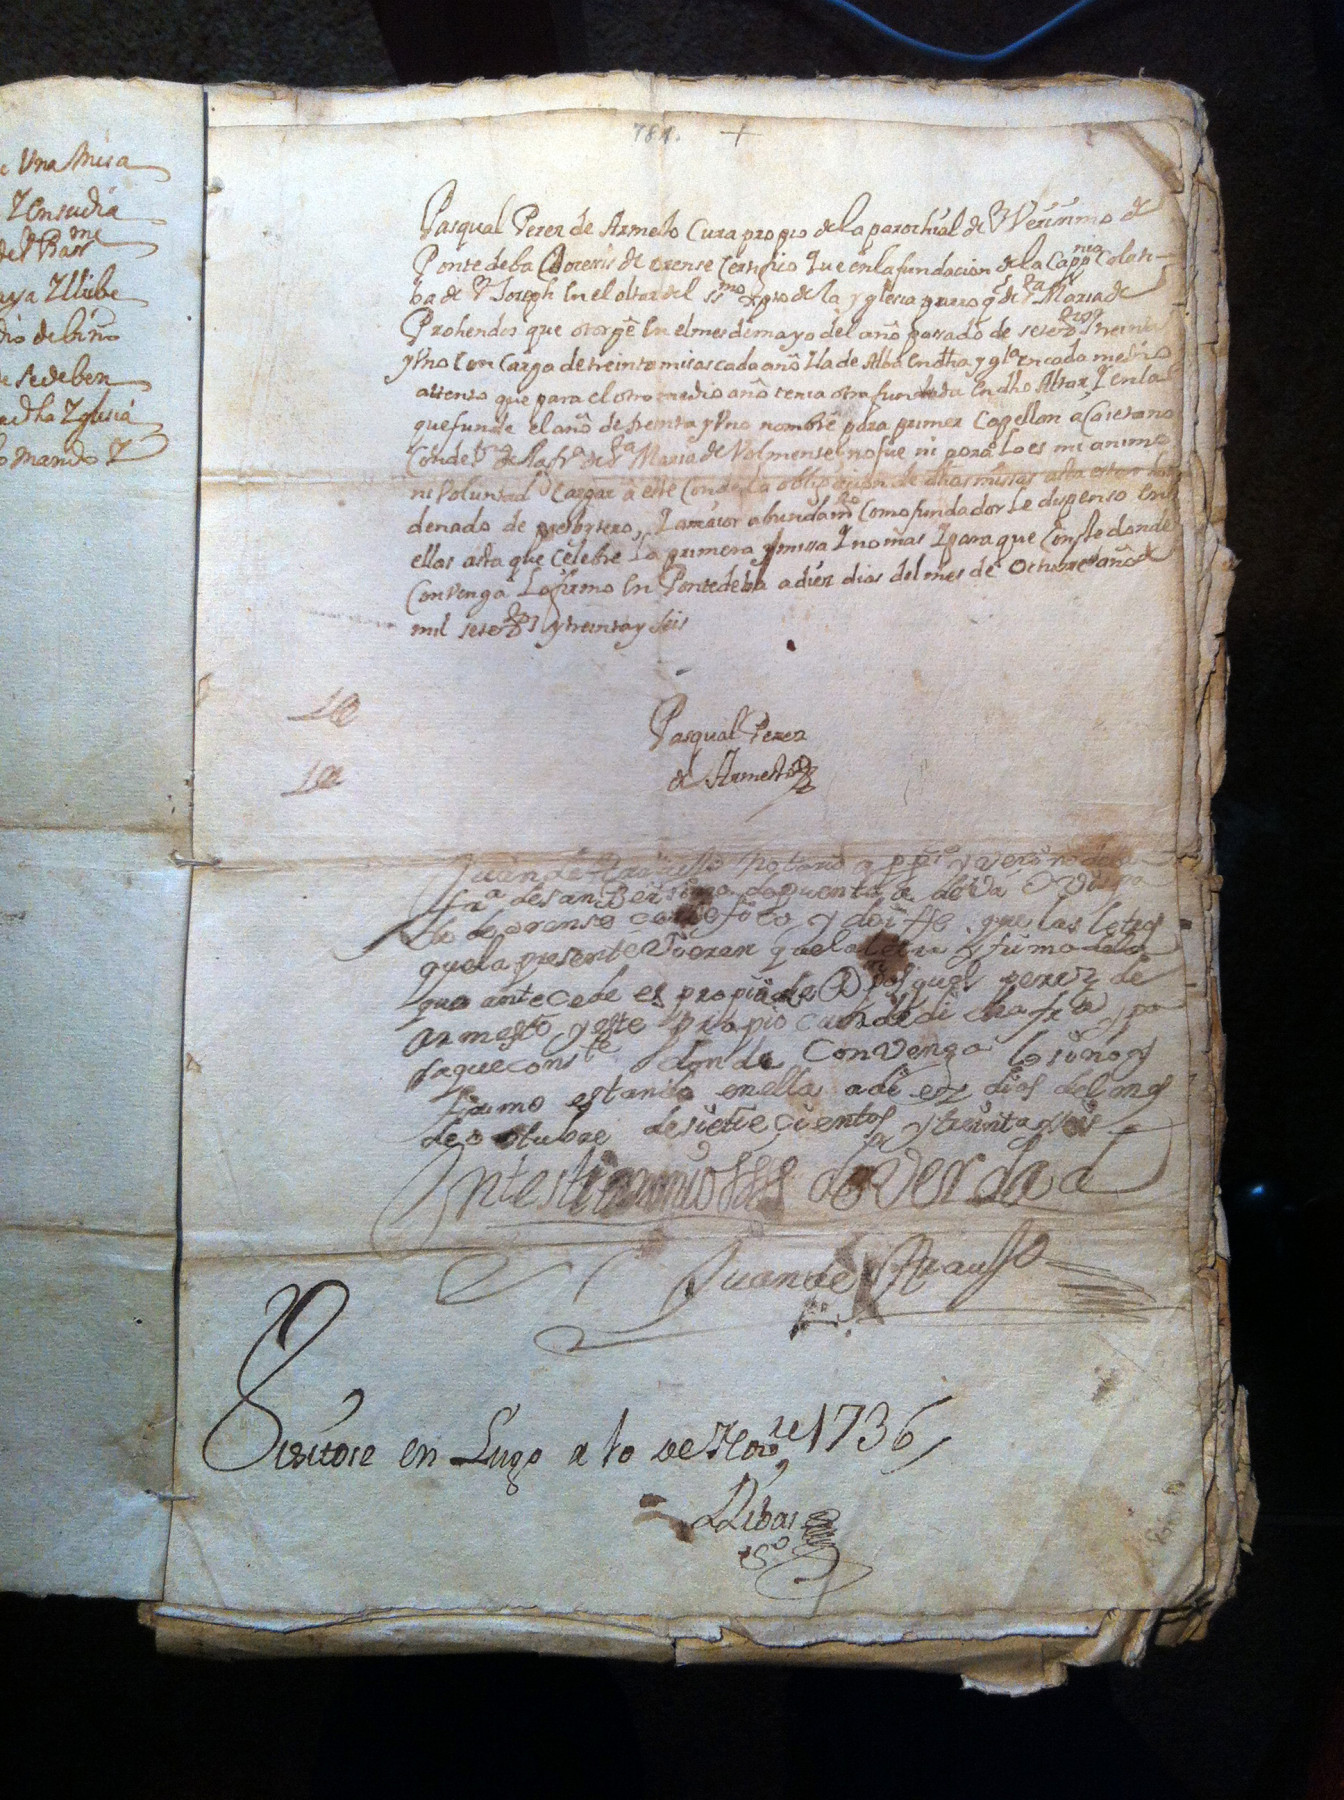 e Una Misa
Y En su dia
del Barr me
aya Y llibe
dio de biño
se deben
dha Yglesia
lo mando Y
781. +
Pasqual Perez de Armesto Cura propio de la parochial de S Verisimo de
Pontedeba Docesis de orense Certifico que en la fundacion de la Capp nia Colati-
ba de S Joseph En el altar del ss mo xpto de la yglesia parroq de S ta Maria de
Prohendos que otorge En el mes de mayo del año passado de sete zos treinta
y Uno Con Carga de treinta misas cada año Y la de Alba En dha ygl a en cada medio
atento que para el otro medio año tenia otra fundada En dho Altar Y en la
que funde el año de treinta y Uno nombre para primer Capellan a Caietano
Conde de la fr a de S ta Maria de Volmense no fue ni pora Lo es mi animo
ni Voluntad Cargar a este Conde La obligacion de dhas missas asta estar hor
denado de presbitero, Y a maior abundam to Como fundador Le dispenso En
ellas asta que Celebre La primera missa Y no mas Y para que Conste donde
Convenga Lo firmo En Pontedeba a diez dias del mes de Octubre año de
mil sete zos y treinta y seis
Pasqual Perez
de Armesto
Juan de Araujo Notario app co y Vecino de la
fr a de san Berisimo de puente de deva Obispa
do de orense certefico y doi ffe que las letras
que la presente Vieren que la letra y firma de la
que antecede es propia de D n Pasqual perez de
armesto y este propio cura de dicha fr a y pa
ra que conste a donde Convenga lo sino y
firmo estando en ella a diez dias del mes
de otubre de siete cientos y treinta y seis
En testimonio de Verdad
Juan de Araujo
Visitose en Lugo a 10 de Nov re 1736
Ribas
SS o